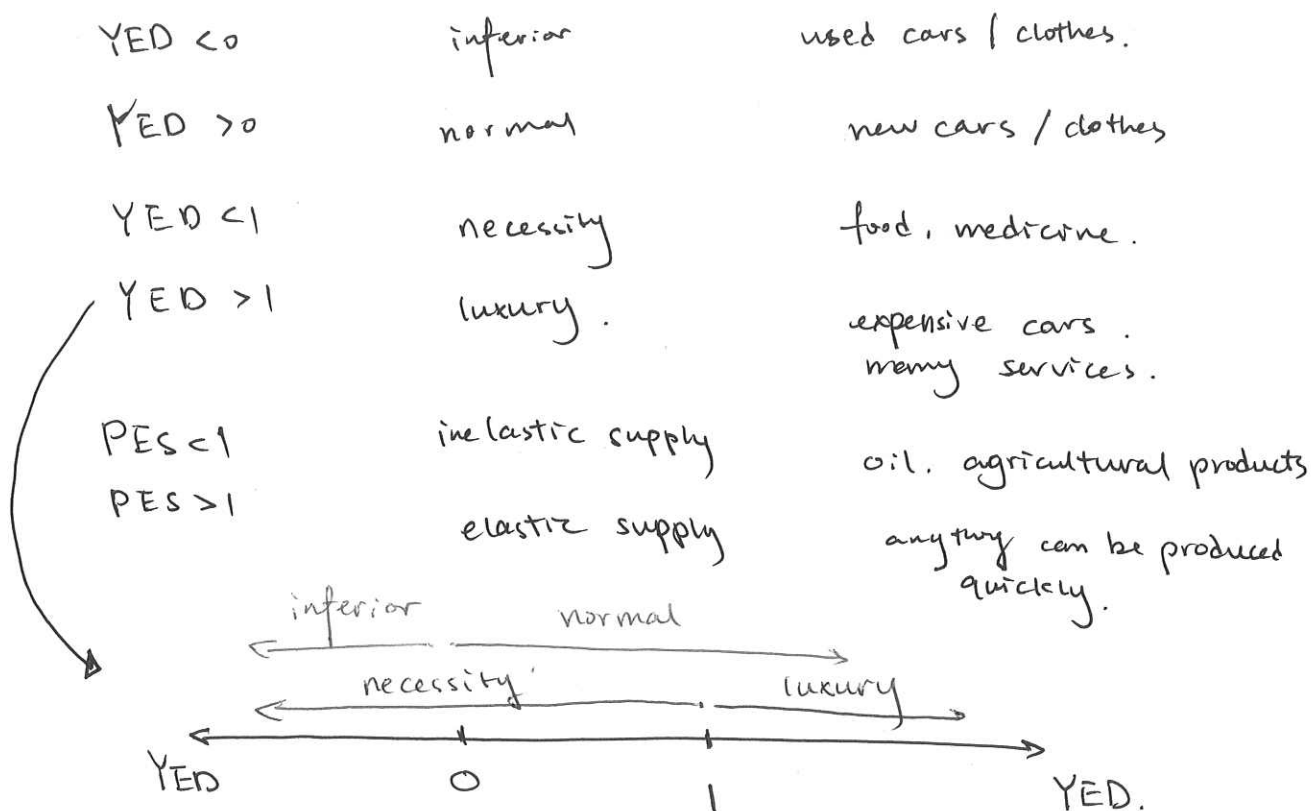 YED <0 inferior used cars / clothes.
YED >0 normal new cars / clothes
YED <1 necessity food, medicine.
YED >1 luxury. expensive cars.
many services.
PES <1 inelastic supply oil, agricultural products
PES >1 elastic supply anythng can be produced
quickly.
inferior normal
necessity luxury
YED 0 1 YED.